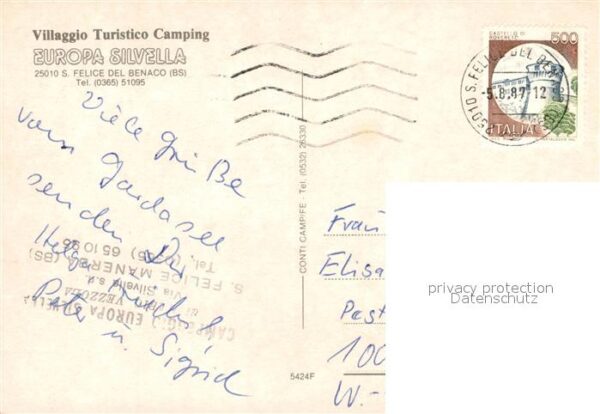 Villaggio Turistico Camping
EUROPA SILVELLA
25010 S. FELICE DEL BENACO (BS)
Tel. (0365) 51095
CASTELLO DI
ROVERETO
500
ITALIA
25010 S. FELICE DEL BEN
-5.8.87 12
Viele Grüße
vom Gardasee
senden Dir
Helga
Peter u. Sigrid
CAMPEGGIO EUROPA SILVELLA
di VEZZOLA
Via Silvella
S. FELICE MANERBA (BS)
Tel. 65 10 95
CONTI CAMPIFE - Tel. (0532) 26330
5424F
Frau
Elisa
Post
100
W.-
privacy protection
Datenschutz